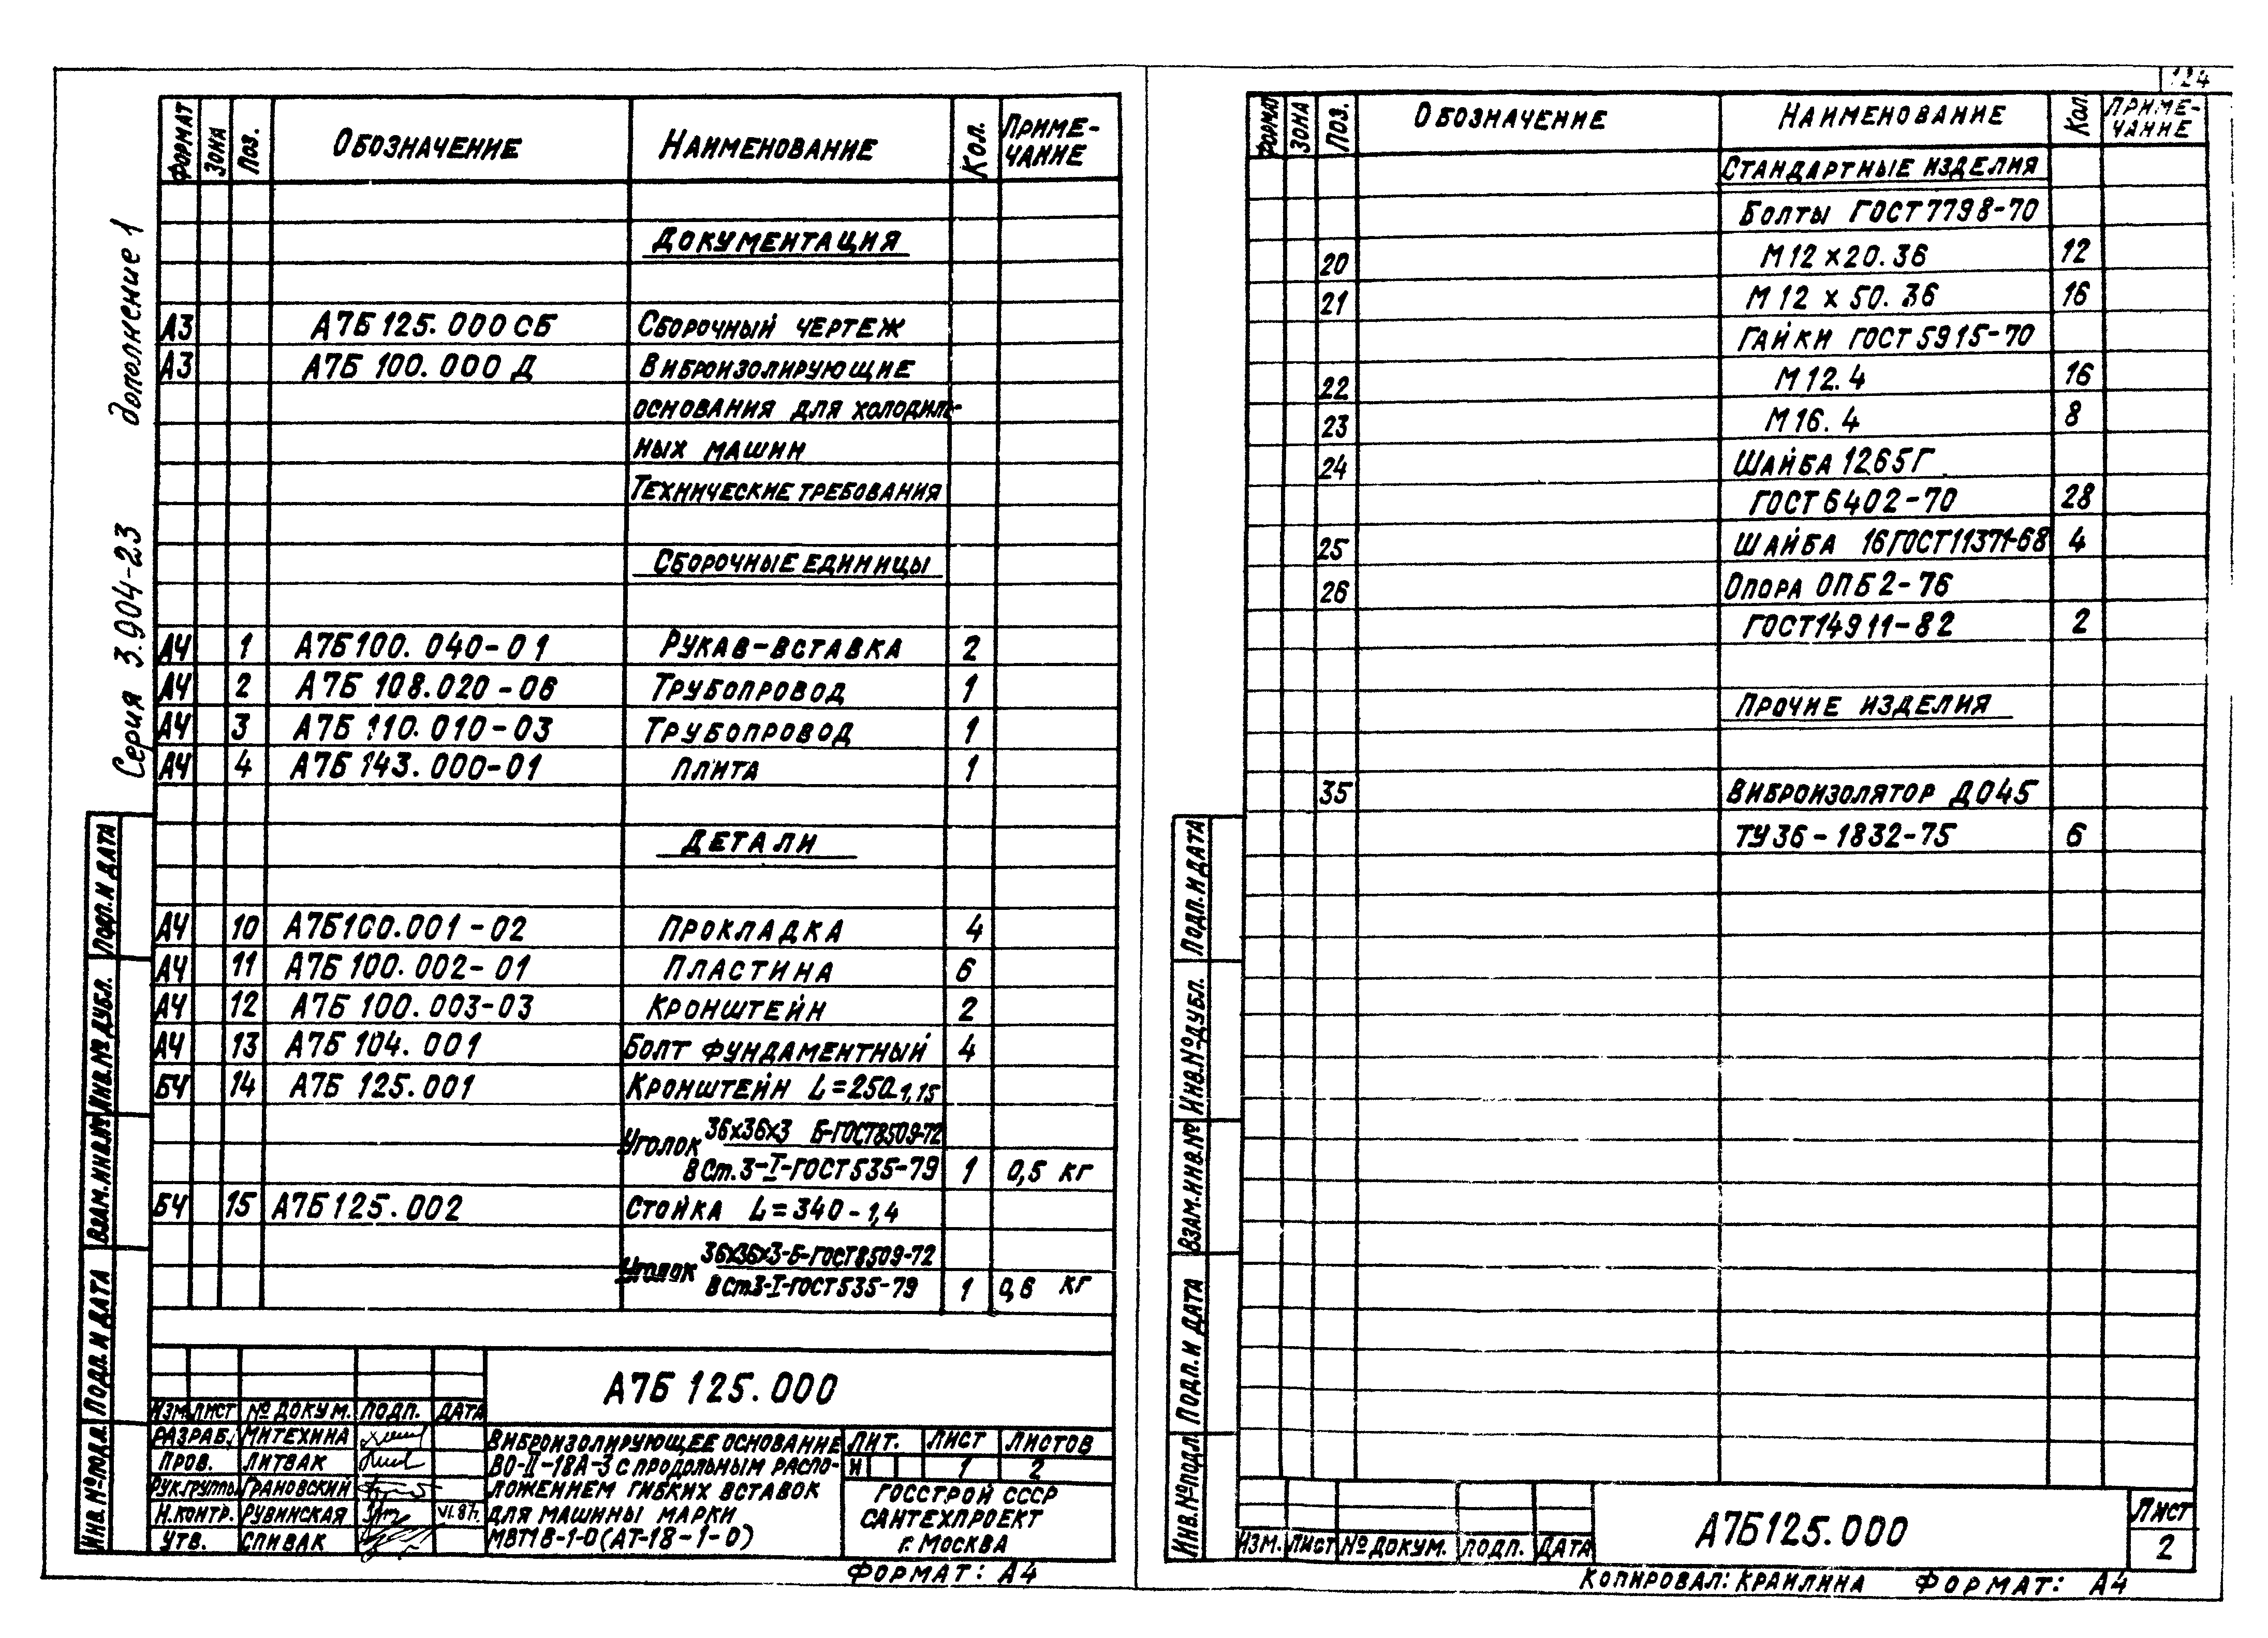 124
Серия 3.904-23 дополнение 1
ФОРМАТ ЗОНА ПОЗ. ОБОЗНАЧЕНИЕ НАИМЕНОВАНИЕ КОЛ. ПРИМЕ-
ЧАНИЕ
ДОКУМЕНТАЦИЯ
А3 А7Б 125.000 СБ СБОРОЧНЫЙ ЧЕРТЕЖ
А3 А7Б 100.000 Д ВИБРОИЗОЛИРУЮЩИЕ
ОСНОВАНИЯ ДЛЯ ХОЛОДИЛЬ-
НЫХ МАШИН
ТЕХНИЧЕСКИЕ ТРЕБОВАНИЯ
СБОРОЧНЫЕ ЕДИНИЦЫ
А4 1 А7Б100.040-01 РУКАВ-ВСТАВКА 2
А4 2 А7Б 108.020-06 ТРУБОПРОВОД 1
А4 3 А7Б 110.010-03 ТРУБОПРОВОД 1
А4 4 А7Б 143.000-01 ПЛИТА 1
ДЕТАЛИ
А4 10 А7Б100.001-02 ПРОКЛАДКА 4
А4 11 А7Б 100.002-01 ПЛАСТИНА 6
А4 12 А7Б 100.003-03 КРОНШТЕЙН 2
А4 13 А7Б 104.001 БОЛТ ФУНДАМЕНТНЫЙ 4
БЧ 14 А7Б 125.001 КРОНШТЕЙН L=250-1,15
УГОЛОК 36х36х3 Б-ГОСТ8509-72
ВСт.3-I-ГОСТ535-79 1 0,5 КГ
БЧ 15 А7Б125.002 СТОЙКА L=340-1,4
УГОЛОК 36х36х3-Б-ГОСТ8509-72
ВСт3-I-ГОСТ535-79 1 0,6 КГ
ПОДП. И ДАТА
ИНВ.№ ДУБЛ.
ВЗАМ.ИНВ.№
ПОДП. И ДАТА
ИНВ.№ ПОДЛ.
А7Б 125.000
ИЗМ. ЛИСТ № ДОКУМ. ПОДП. ДАТА
РАЗРАБ. МИТЕХИНА
ПРОВ. ЛИТВАК
РУК.ГРУППЫ ГРАНОВСКИЙ
Н.КОНТР. РУВИНСКАЯ VI.87г.
УТВ. СПИВАК
ВИБРОИЗОЛИРУЮЩЕЕ ОСНОВАНИЕ
ВО-II-18А-3 С ПРОДОЛЬНЫМ РАСПО-
ЛОЖЕНИЕМ ГИБКИХ ВСТАВОК
ДЛЯ МАШИНЫ МАРКИ
МВТ18-1-0 (АТ-18-1-0)
ЛИТ. ЛИСТ ЛИСТОВ
И 1 2
ГОССТРОЙ СССР
САНТЕХПРОЕКТ
г. МОСКВА
ФОРМАТ: А4
ФОРМАТ ЗОНА ПОЗ. ОБОЗНАЧЕНИЕ НАИМЕНОВАНИЕ КОЛ. ПРИМЕ-
ЧАНИЕ
СТАНДАРТНЫЕ ИЗДЕЛИЯ
БОЛТЫ ГОСТ7798-70
20 М12х20.36 12
21 М12 х 50.36 16
ГАЙКИ ГОСТ 5915-70
22 М12.4 16
23 М16.4 8
24 ШАЙБА 1265Г
ГОСТ6402-70 28
25 ШАЙБА 16ГОСТ11371-68 4
26 ОПОРА ОПБ2-76
ГОСТ14911-82 2
ПРОЧИЕ ИЗДЕЛИЯ
35 ВИБРОИЗОЛЯТОР ДО45
ТУ36-1832-75 6
ПОДП. И ДАТА
ИНВ.№ ДУБЛ.
ВЗАМ.ИНВ.№
ПОДП. И ДАТА
ИНВ.№ ПОДЛ.
ИЗМ. ЛИСТ № ДОКУМ. ПОДП. ДАТА
А7Б125.000
ЛИСТ
2
КОПИРОВАЛ: КРАИЛИНА ФОРМАТ: А4